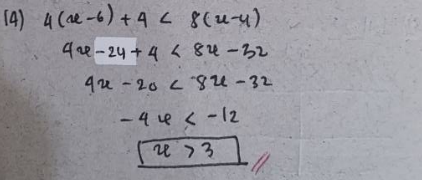 (4) 4(x-6)+4 < 8(x-4)
4x-24+4 < 8x-32
4x-20 < 8x-32
-4x < -12
x > 3